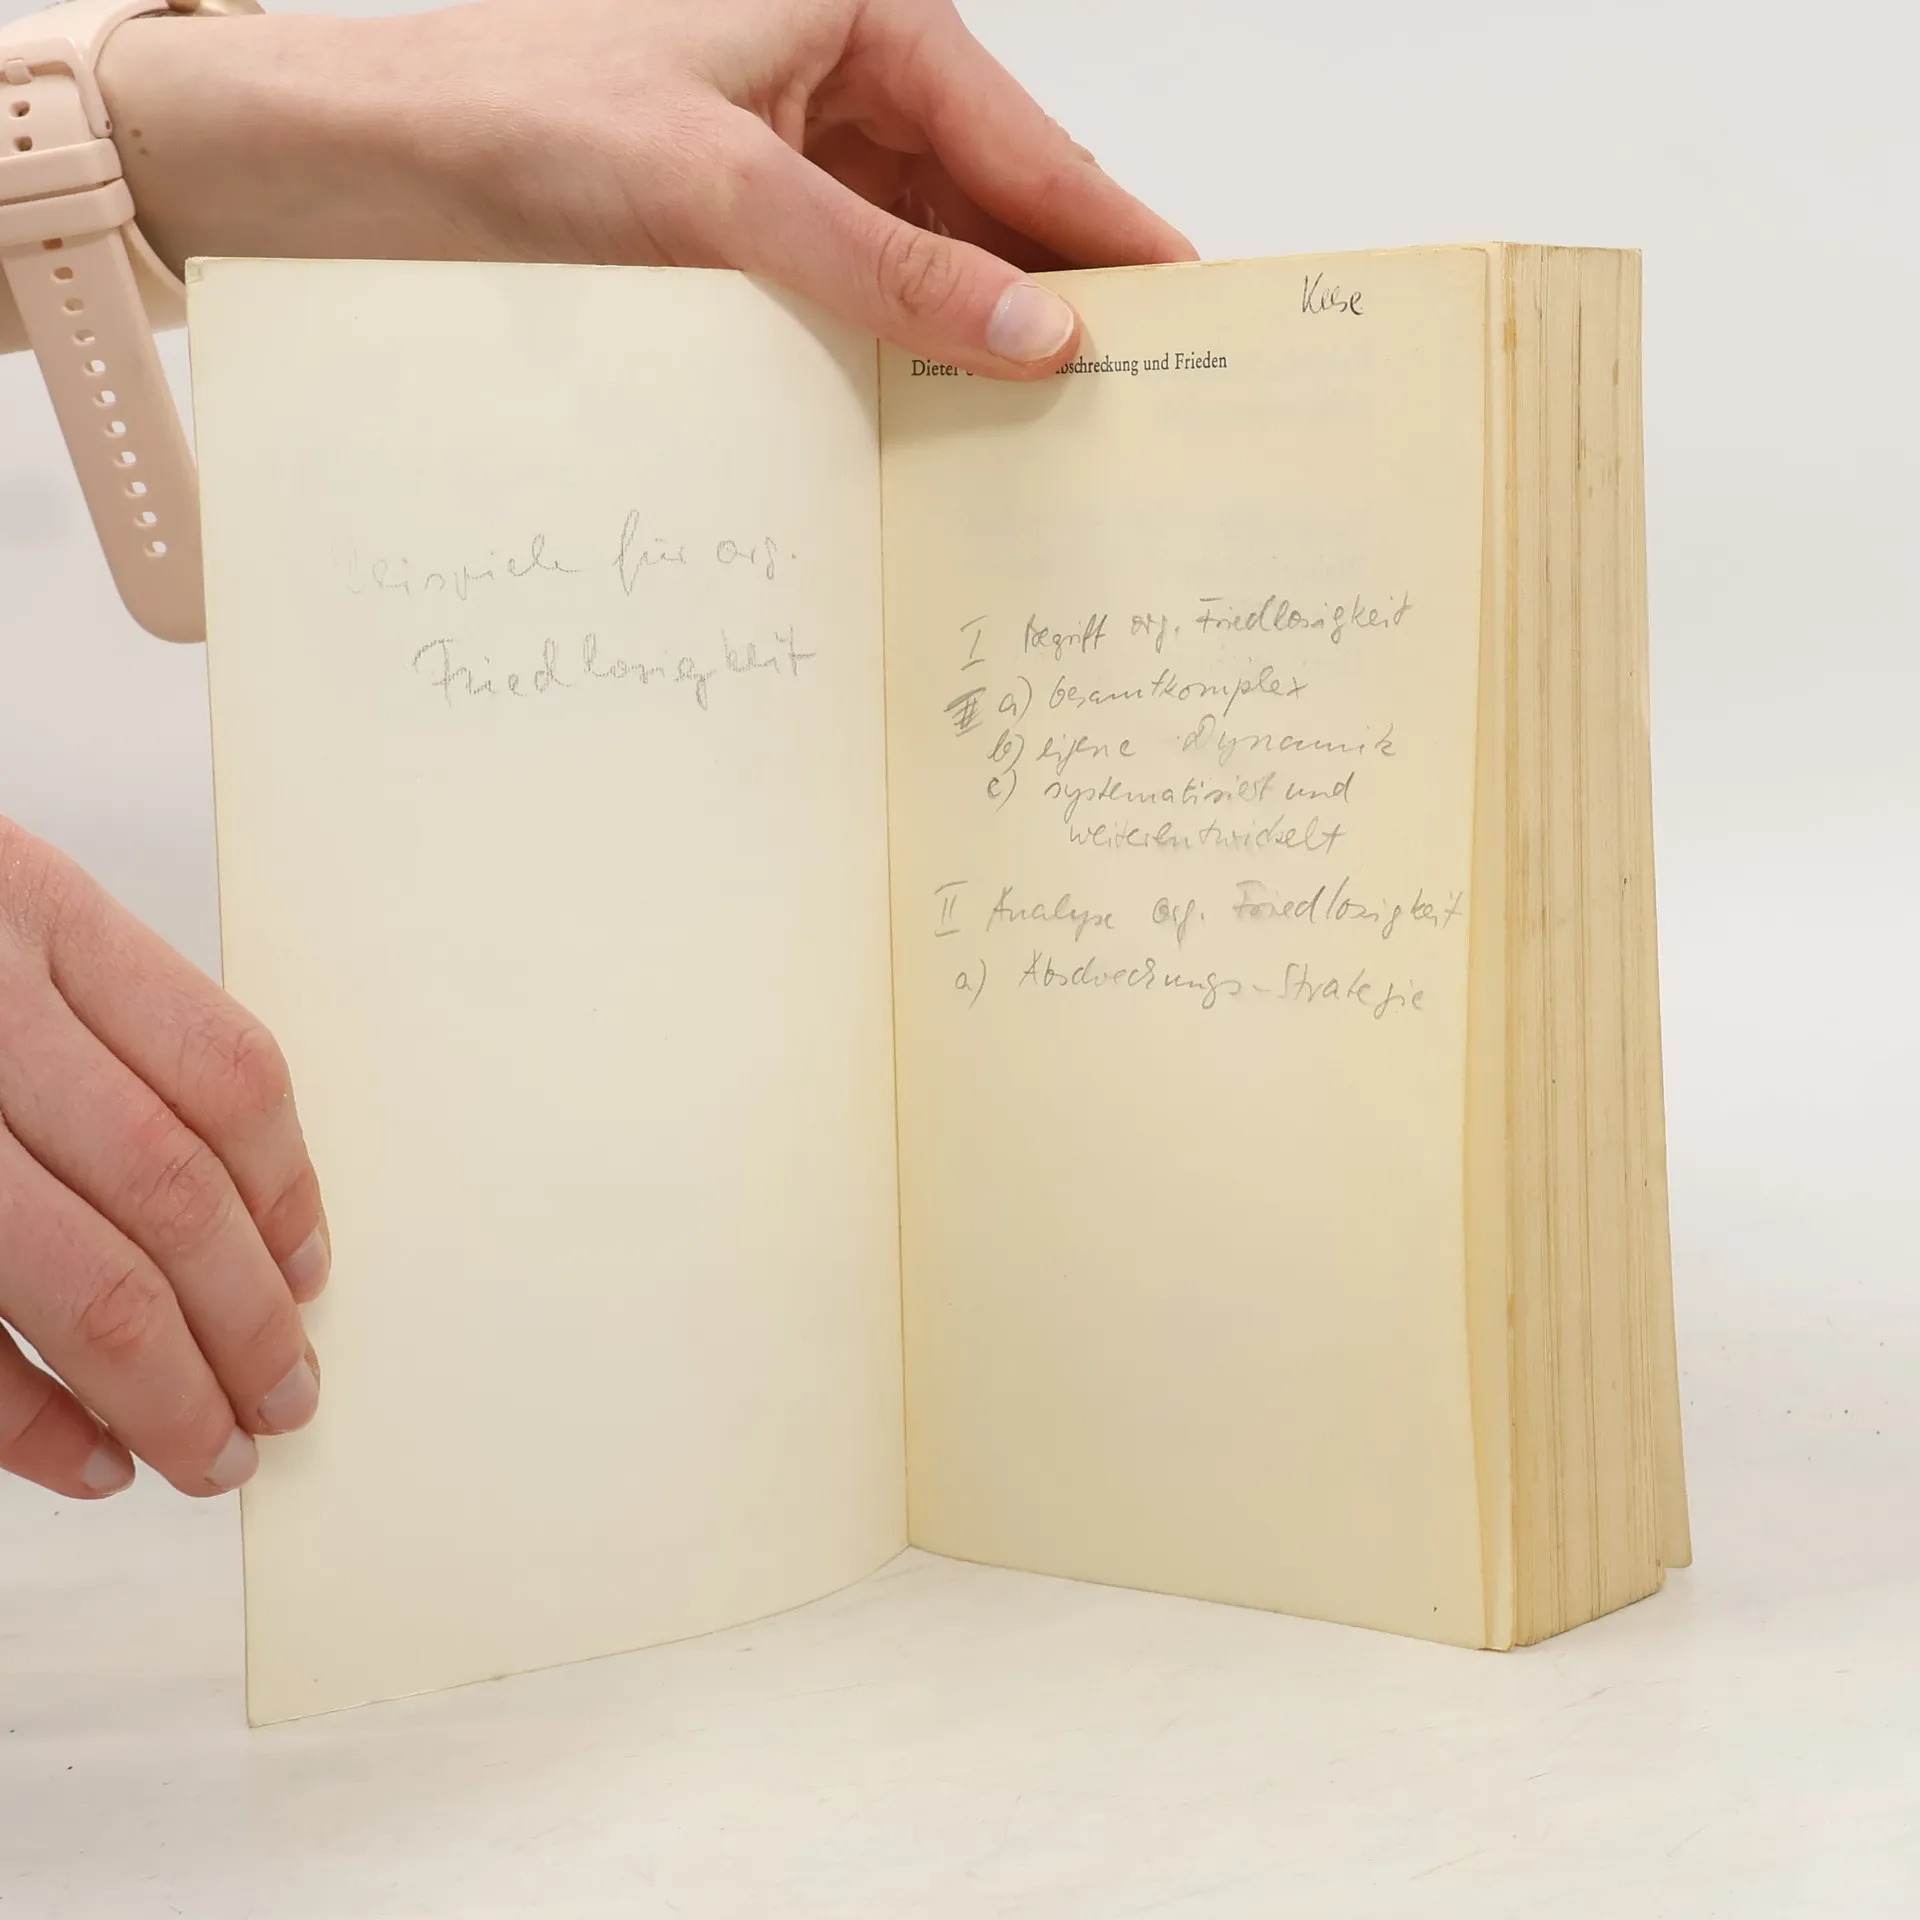 Beispiele für org.
Friedlosigkeit
Keese
Dieter Abschreckung und Frieden
I Begriff org. Friedlosigkeit
a) Gesamtkomplex
b) eigene Dynamik
c) systematisiert und
weiterentwickelt
II Analyse org. Friedlosigkeit
a) Abschreckungs-Strategie